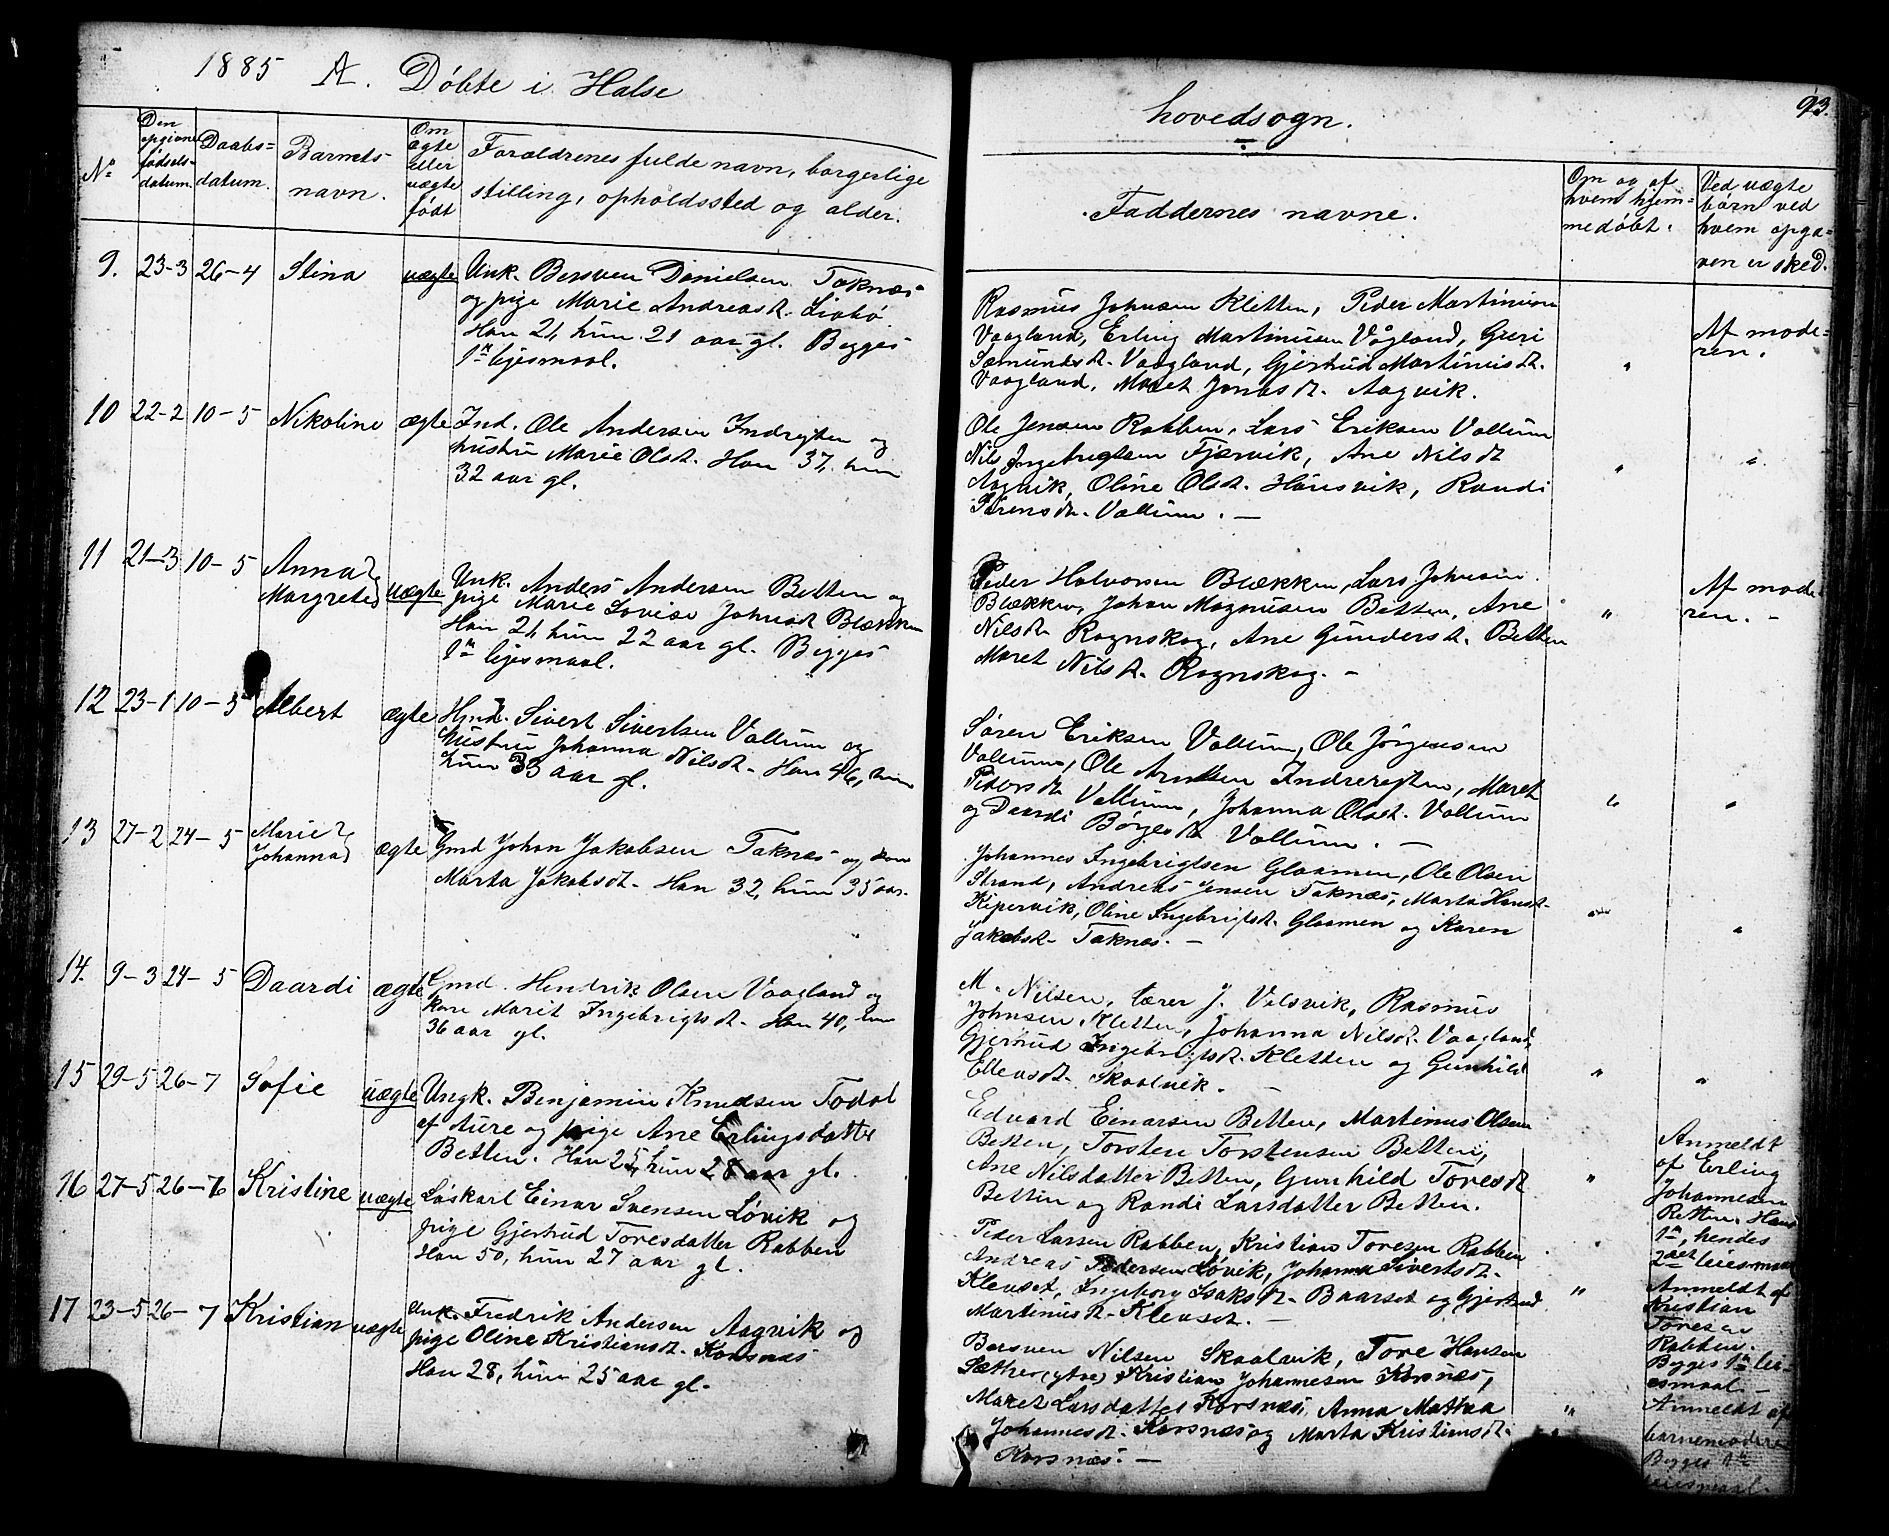 1885 A. Döbte i Halse
hovedsogn.
93.
Nº
Den opgivne fødsels-datum.
Daabs-datum.
Barnets navn.
Om ægte eller uægte født
Forældrenes fulde navn, borgerlige
stilling, opholdssted og alder.
Faddernes navne.
Om og af hvem hjem-medøbt.
Ved uægte børn ved hvem opga-ven er sked.
9. 23-3 26-4 Stina uægte Unk. Bersven Danielsen Taknæs
og pige Marie Andreasd. Liabö.
Han 21, hun 21 aar gl. Begges
1ste lejesmaal.
Rasmus Johnsen Kletten, Peder Martinusen
Vaagland, Erling Martinusen Vågland, Guri
Sæmundsdt. Vaagland, Gjertrud Martinusdt.
Vaagland, Maret Jonasdt. Aagvik.
" Af mode-
ren.
10 22-2 10-5 Nikoline ægte Ind. Ole Andersen Indregten og
hustru Marie Olsdt. Han 37, hun
32 aar gl.
Ole Jensen Rabben, Lars Eriksen Vallum
Nils Ingebrigtsen Fjærvik, Ane Nilsdt
Aagvik, Oline Olsdt. Hönsvik, Randi
Sörensdt. Vallum. —
" "
11 21-3 10-5 Anna
Margrete uægte Unk. Anders Andersen Betten og
pige Marie Lovise Johnsdt Blækken
Han 21, hun 22 aar gl. Begges
1ste lejesmaal.
Peder Halvorsen Blækken, Lars Johnsen
Blækken, Johan Magnusen Betten, Ane
Nilsdt Rognskog, Ane Gundersdt. Betten
Maret Nilsdt. Rognskog. —
" Af mode
ren. —
12 23-1 10-5 Albert ægte Hmd. Sivert Sivertsen Vallum og
hustru Johanna Nilsdt. Han 46, hun
hun 33 aar gl.
Sören Eriksen Vallum, Ole Jörgensen
Vallum, Ole Andersen Indreregten, Maret
Pedersdt Vallum, Johanna Olsdt. Vallum
og Daardi Börgesdt Vallum. —
" "
13 27-2 24-5 Marie
Johanna ægte Gmd Johan Jakobsen Taknæs og kone
Marta Jakobsdt. Han 32, hun 35 aar.
Johannes Ingebrigtsen Glaamen, Ole Olsen
Strand, Andreas Jensen Taknæs, Marta Hansdt.
Kipervik, Oline Ingebrigtsdt. Glaamen og Karen
Jakobsdt. Taknæs. —
" "
14. 9-3 24-5 Daardi ægte Gmd. Hendrik Olsen Vaagland og
kone Marit Ingebrigtsdt. Han 40, hun
36 aar gl.
M. Nilsen, lærer J. Valsvik, Rasmus
Johnsen Kletten, Johanna Nilsdt. Vaagland,
Gjertrud Ingebrigtsdt. Kletten og Gunhild
Ellevsdt. Skaalvik. —
" "
15 29-5 26-7 Sofie uægte Ungk. Benjamin Knudsen Todal
af Aure og pige Ane Erlingsdatter
Betten. Han 25, hun 28 aar gl.
Edvard Einarsen Betten, Martinus Olsen
Betten, Torsten Torstensen Betten,
Ane Nilsdatter Betten, Gunhild Toresdt
Betten og Randi Larsdatter Betten.
" Anmeldt
af Erling
Johannesen
Betten. Hans
1ste, hendes
2det leiesmaal
16 27-5 26-7 Kristine uægte Løskarl Einar Svensen Løvik og
pige Gjertrud Toresdatter Rabben
Han 50, hun 27 aar gl.
Peder Larsen Rabben, Kristian Toresen Rabben
Andreas Pedersen Løvik, Johanna Sivertsdt.
Klevset, Ingeborg Isaksdt. Baarset og Gjertrud
Martinusdt. Klevset. —
" Anmeldt af
Kristian
Toresen
Rabben.
Begges 1ste lei-
esmaal. —
17 23-5 26-7 Kristian uægte Unk. Fredrik Andersen Aagvik og
pige Oline Kristiansdt. Korsnæs
Han 28, hun 25 aar gl.
Bersven Nilsen Skaalvik, Tore Hansen
Sæther (ytre) Kristian Johannesen Korsnæs,
Maret Larsdatter Korsnæs, Anna Mathea
Johannesdt. Korsnæs og Marta Kristiansdt.
Korsnæs. —
" Anmeldt af
barnemoderen
Begges 1ste
leiesmaal.